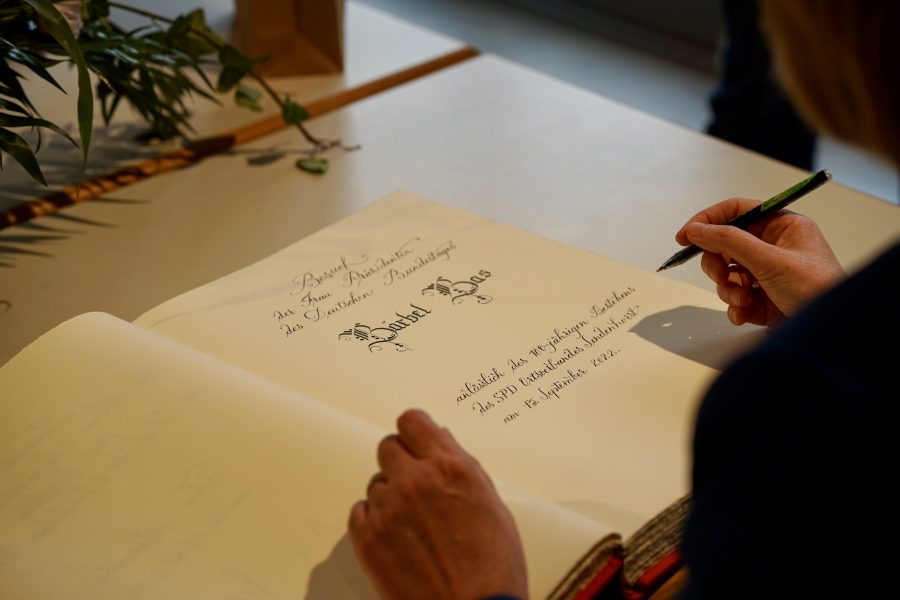 Besuch
der Frau Präsidentin
des Deutschen Bundestages
Bärbel Bas
anläßlich des 100-jährigen Bestehens
des SPD Ortsverbandes Sendenhorst
am September 2022.